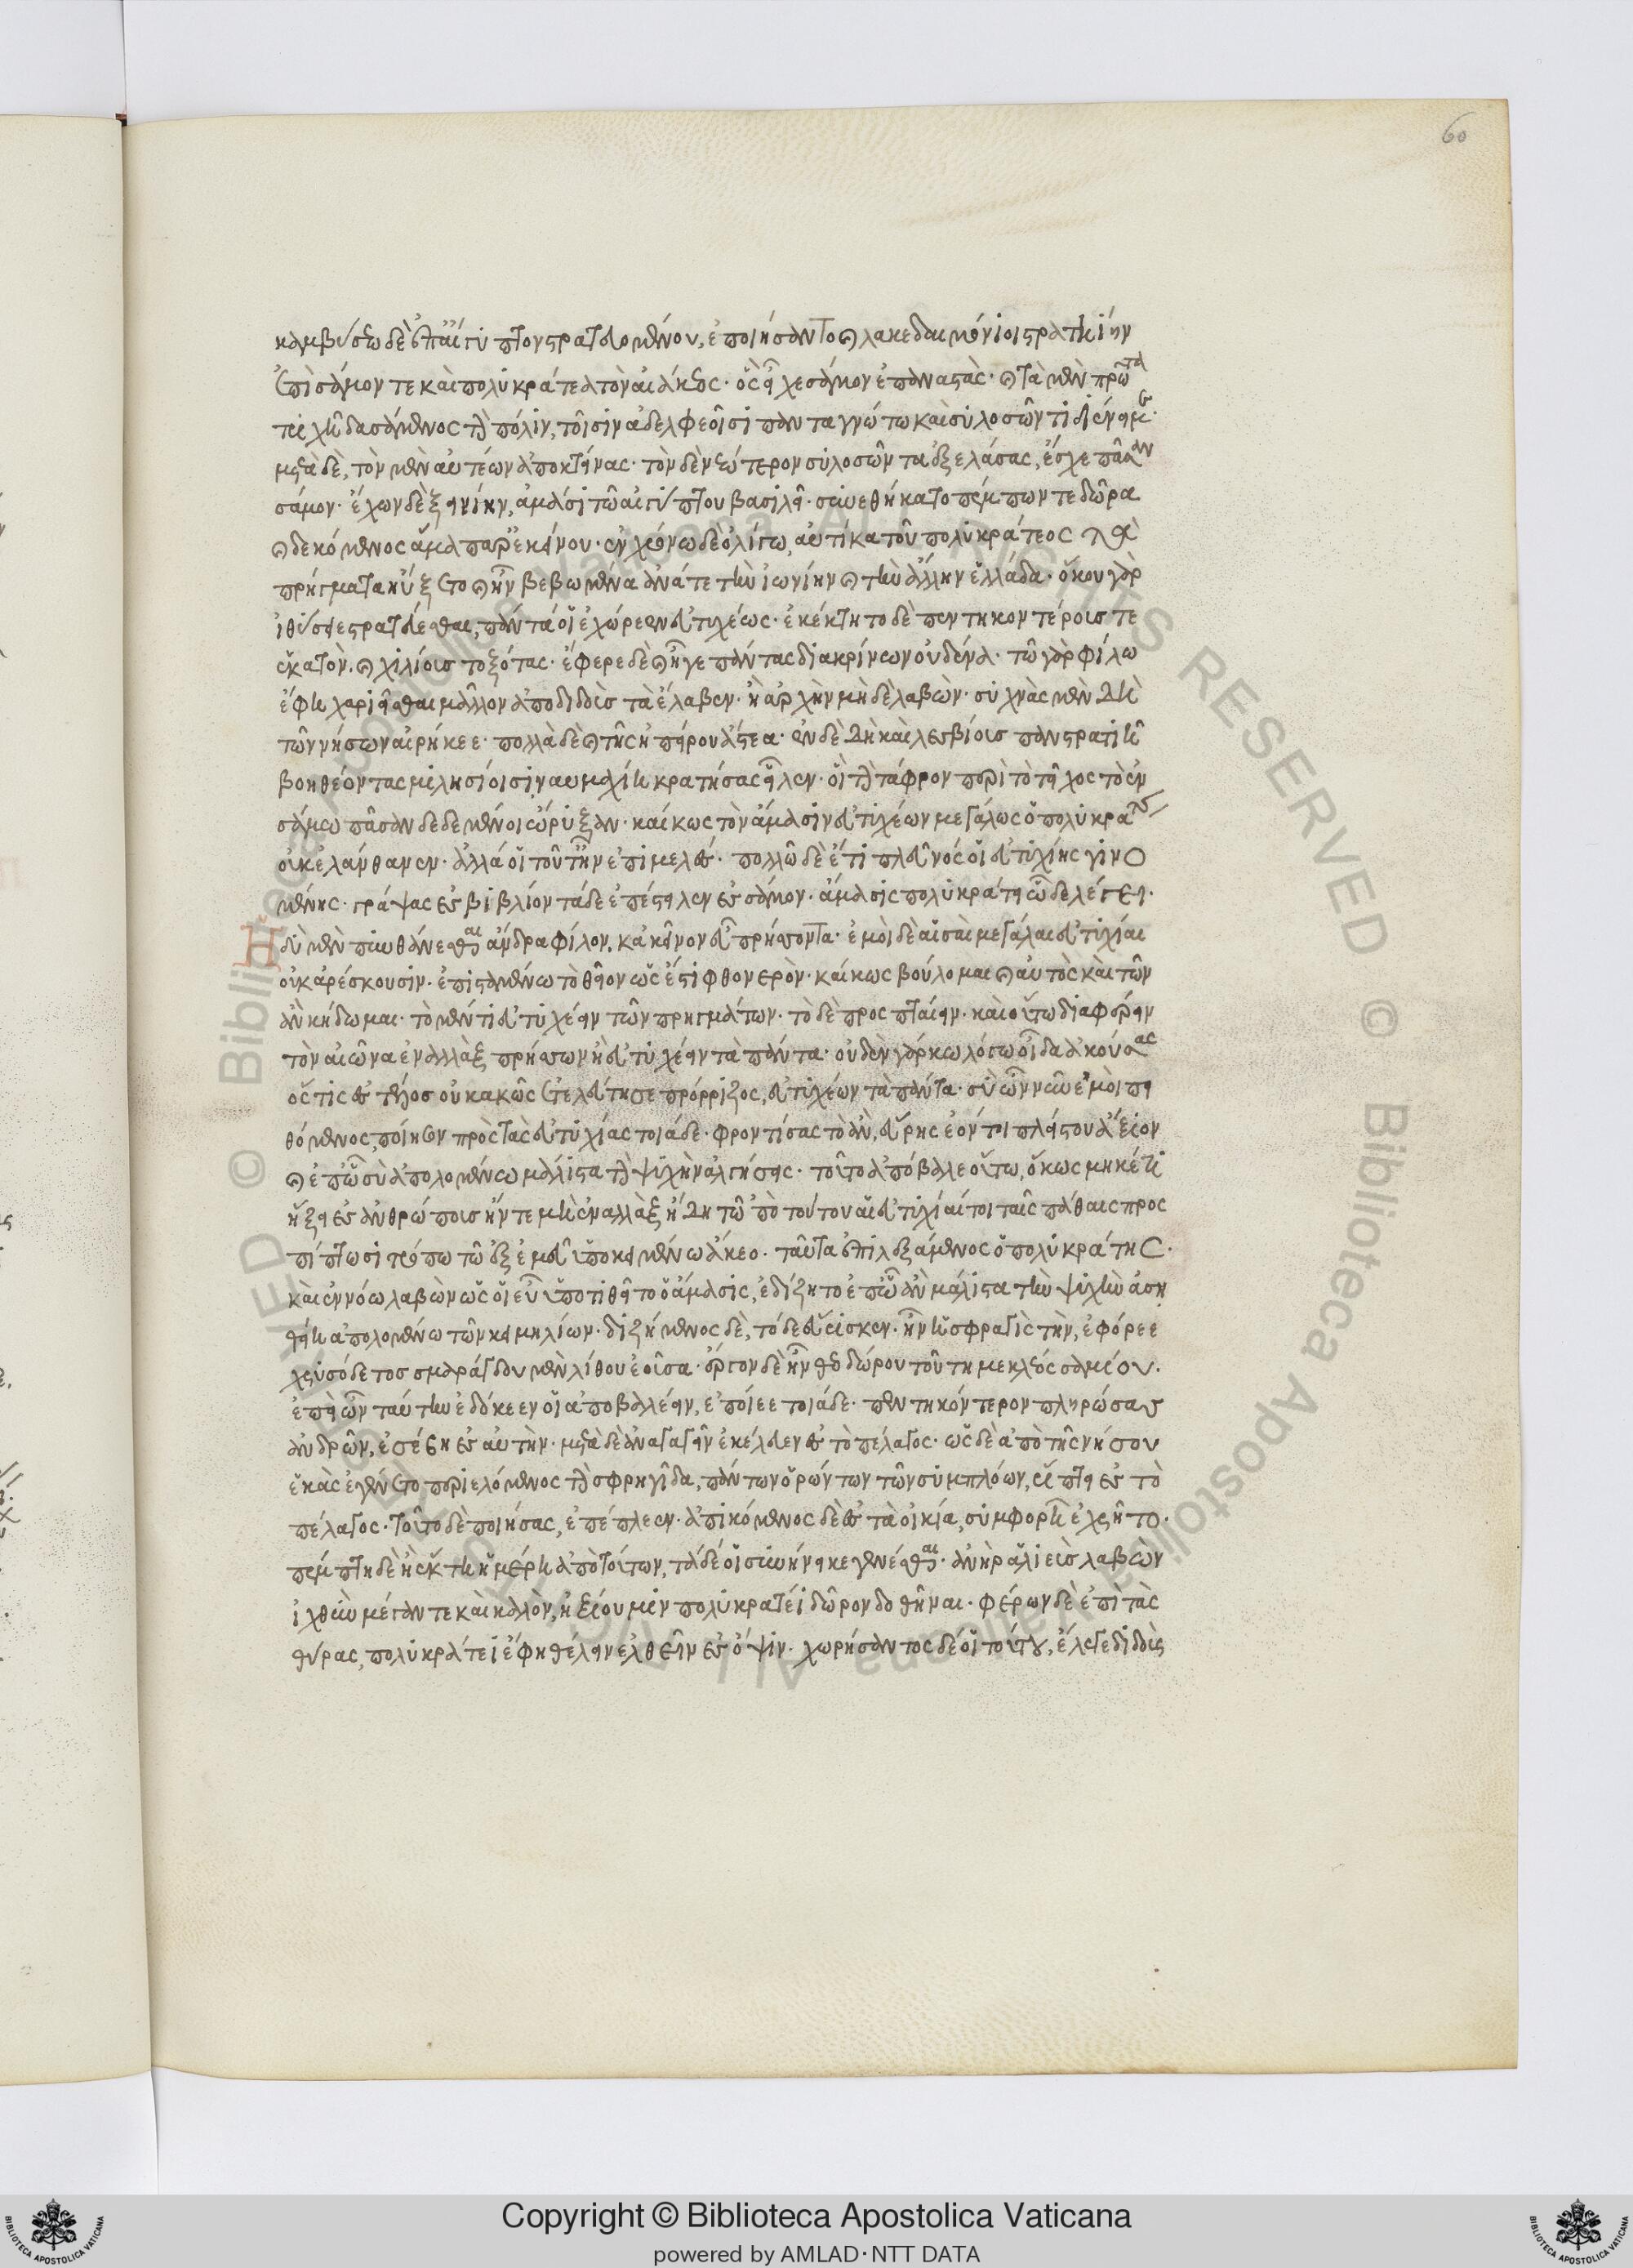 60
καμβύσεω δὲ ἐπ' αἴγυπτον στρατευομένου, ἐποιήσαντο καὶ λακεδαιμόνιοι στρατηίην
ἐπὶ σάμον τε καὶ πολυκράτεα τὸν αἰάκεος· ὃς ἔσχε σάμον ἐπαναστάς· καὶ τὰ μὲν πρῶτα
τριχῆ δασάμενος τὴν πόλιν, τοῖσιν ἀδελφεοῖσι πανταγνώτω καὶ συλοσῶντι διένειμε·
μετὰ δὲ, τὸν μὲν αὐτέων ἀποκτείνας· τὸν δὲ νεώτερον συλοσῶντα ἐξελάσας, ἔσχε πᾶσαν
σάμον· ἔχων δὲ ξεινίην, ἀμάσι τῶ αἰγύπτου βασιλεῖ· συνεθήκατο πέμπων τε δῶρα
καὶ δεκόμενος ἄλλα παρ' ἐκείνου· ἐν χρόνω δὲ ὀλίγω, αὐτίκα τοῦ πολυκράτεος τὰ
πρήγματα ηὔξετο καὶ ἦν βεβωμένα ἀνά τε τὴν ἰωνίην καὶ τὴν ἄλλην ἑλλάδα· ὅκου γὰρ
ἰθύσειε στρατεύεσθαι, πάντά οἱ ἐχώρεεν εὐτυχέως· ἐκέκτητο δὲ πεντηκοντέρους τε
ἑκατὸν, καὶ χιλίους τοξότας· ἔφερε δὲ καὶ ἦγε πάντας διακρίνων οὐδένα· τῶ γὰρ φίλω
ἔφη χαριεῖσθαι μᾶλλον ἀποδιδοὺς τὰ ἔλαβεν· ἢ ἀρχὴν μὴ δὲ λαβών· συχνὰς μὲν δὴ
τῶν νήσων αἱρήκεε· πολλὰ δὲ καὶ τῆς ἠπείρου ἄστεα· ἐν δὲ δὴ καὶ λεσβίους πανστρατιῆ
βοηθέοντας μιλησίοισι ναυμαχίη κρατήσας εἷλεν· οἳ τὴν τάφρον περὶ τὸ τεῖχος τὸ ἐν
σάμω πᾶσαν δεδεμένοι ὤρυξαν· καί κως τὸν ἄμασιν εὐτυχέων μεγάλως ὁ πολυκράτης
οὐκ ἐλάνθανεν· ἀλλά οἱ τοῦτ' ἦν ἐπιμελές· πολλῶ δὲ ἔτι πλεῦνός οἱ εὐτυχίης γινο
μένης· γράψας ἐς βιβλίον τάδε ἐπέστειλεν ἐς σάμον· ἄμασις πολυκράτει ὧδε λέγει·
Ἡδὺ μὲν πυνθάνεσθαι ἄνδρα φίλον, κἀκεῖνον εὖ πρήσσοντα· ἐμοὶ δὲ αἱ σαὶ μεγάλαι εὐτυχίαι
οὐκ ἀρέσκουσιν· ἐπισταμένω τὸ θεῖον ὡς ἔστι φθονερόν· καί κως βούλομαι καὶ αὐτὸς καὶ τῶν
ἂν κήδωμαι· τὸ μέν τι εὐτυχέειν τῶν πρηγμάτων· τὸ δὲ προσπταίειν· καὶ οὕτω διαφέρειν
τὸν αἰῶνα ἐναλλὰξ πρήσσων ἢ εὐτυχέειν τὰ πάντα· οὐδένα γάρ κω λόγω οἶδα ἀκούσας
ὅστις ἐς τέλος οὐ κακῶς ἐτελεύτησε πρόρριζος, εὐτυχέων τὰ πάντα· σὺ ὦν νῦν ἐμοὶ πει
θόμενος, ποίησον πρὸς τὰς εὐτυχίας τοιάδε· φροντίσας τὸ ἂν, εὕρης ἐόν τοι πλείστου ἄξιον
καὶ ἐπ' ὧ σὺ ἀπολομένω μάλιστα τὴν ψυχὴν ἀλγήσεις· τοῦτο ἀπόβαλε οὕτω, ὅκως μηκέτι
ἥξει ἐς ἀνθρώπους· ἤν τε μὴ ἐναλλὰξ ἤδη τὠπὸ τούτου αἱ εὐτυχίαί τοι ταῖς πάθαις προς
πίπτωσι τρόπω τῶ ἐξ ἐμεῦ ὑποκειμένω ἀκέο· ταῦτα ἐπιλεξάμενος ὁ πολυκράτης·
καὶ ἐν νόω λαβὼν ὥς οἱ εὖ ὑποτιθεῖτο ὁ ἄμασις, ἐδίζητο ἐπ' ὧ ἂν μάλιστα τὴν ψυχὴν ἀση
θείη ἀπολομένω τῶν κειμηλίων· διζήμενος δὲ, τόδε εὕρισκεν· ἦν οἱ σφραγὶς τὴν, ἐφόρεε
χρυσόδετος σμαράγδου μὲν λίθου ἐοῦσα· ἔργον δὲ ἦν θεοδώρου τοῦ τηλεκλέος σαμίου·
ἐπεὶ ὦν ταύτην ἐδόκεέν οἱ ἀποβαλέειν, ἐποίεε τοιάδε· πεντηκόντερον πληρώσας
ἀνδρῶν, ἐσέβη ἐς αὐτήν· μετὰ δὲ ἀναγαγεῖν ἐκέλευεν ἐς τὸ πέλαγος· ὡς δὲ ἀπὸ τῆς νήσου
ἑκὰς ἐγένετο περιελόμενος τὴν σφρηγῖδα, πάντων ὁρώντων τῶν συμπλόων, ῥίπτει ἐς τὸ
πέλαγος· τοῦτο δὲ ποιήσας, ἐπέπλεεν· ἀπικόμενος δὲ ἐς τὰ οἰκία, συμφορῆ ἐχρῆτο·
πέμπτη δὲ ἢ ἕκτη ἡμέρη ἀπὸ τούτων, τάδε οἱ συνήνεικε γενέσθαι· ἀνὴρ ἁλιεὺς λαβὼν
ἰχθὺν μέγαν τε καὶ καλὸν, ἠξίου μιν πολυκρατέι δῶρον δοθῆναι· φέρων δὲ ἐπὶ τὰς
θύρας, πολυκράτεϊ ἔφη θέλειν ἐλθεῖν ἐς ὄψιν· χωρήσαντος δέ οἱ τούτου, ἔλεγε διδοὺς
Copyright © Biblioteca Apostolica Vaticana
powered by AMLAD·NTT DATA